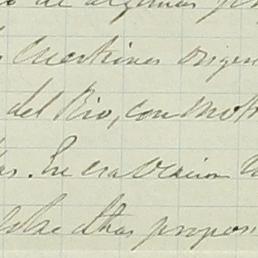 de algunas
cuestiones origen
del Rio, con mot
En esa ocasion
otras propos